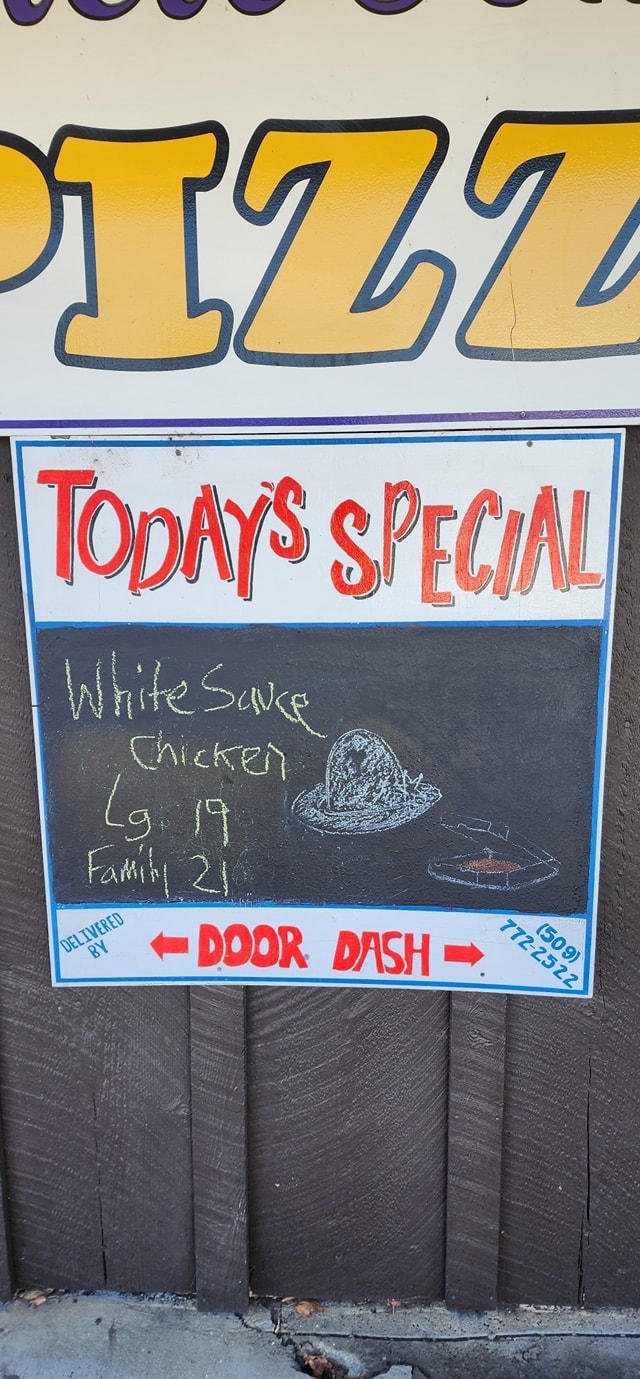 PIZZ
TODAY'S SPECIAL
White Sauce
Chicken
Lg 19
Family 21
DELIVERED
BY
DOOR DASH
(509)
772-2522